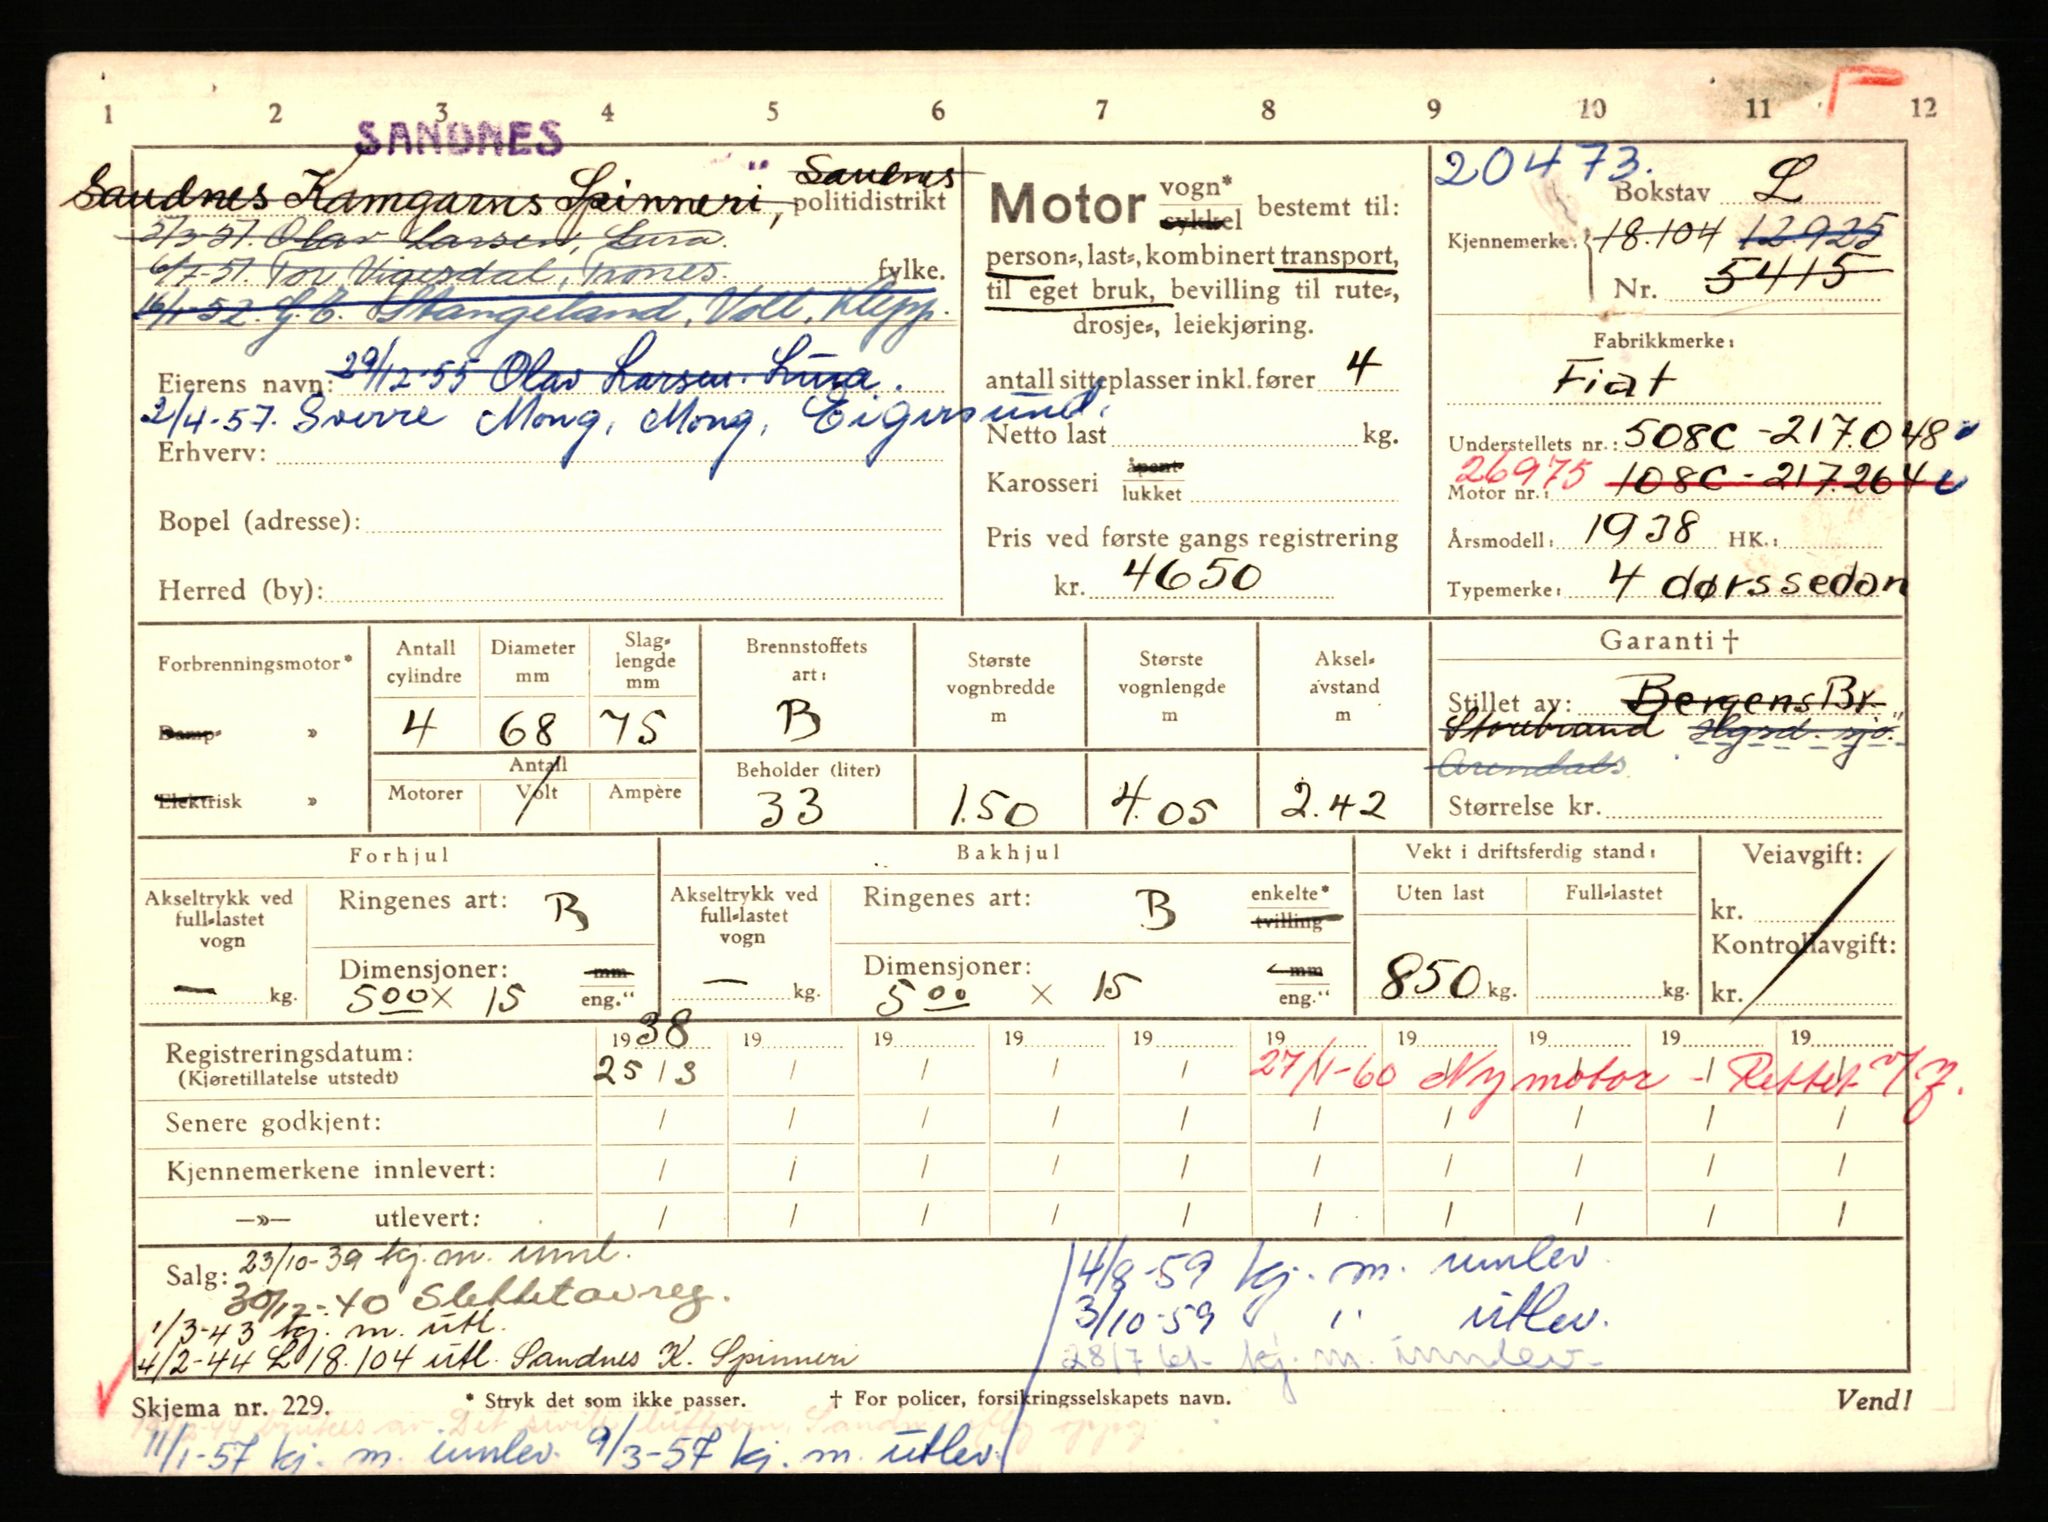 1 2 3 4 5 6 7 8 9 10 11 12
SANDNES
Sandnes Kamgarns Spinneri, Sandnes politidistrikt
5/3-51. Olav Larsen, Lura.
6/7-51. Tor Vigesdal, Trones. fylke.
16/1-52. G. E. Stangeland, Voll, Klepp.
Eierens navn: 29/12-55 Olav Larsen. Lura.
2/4-57. Sverre Mong, Mong, Eigersund.
Erhverv:
Bopel (adresse):
Herred (by):
Motor vogn* sykkel bestemt til:
person-, last-, kombinert transport,
til eget bruk, bevilling til rute-,
drosje-, leiekjøring.
antall sitteplasser inkl. fører 4
Netto last kg.
Karosseri åpent lukket
Pris ved første gangs registrering
kr. 4650
20473.
Bokstav L
Kjennemerke: 18.104 12925
Nr. 5415
Fabrikkmerke:
Fiat
Understellets nr.: 508C-217.048
26975
Motor nr.: 108C-217.264
Årsmodell: 1938 HK.:
Typemerke: 4 dørssedan
Forbrenningsmotor*
Damp- »
Elektrisk »
Antall cylindre 4
Diameter mm 68
Slaglengde mm 75
Antall
Motorer Volt Ampère
Brennstoffets art: B
Beholder (liter) 33
Største vognbredde m 1.50
Største vognlengde m 4.05
Akselavstand m 2.42
Garanti †
Stillet av: Bergens Br.
Storebrand
Arendals
Størrelse kr.
Forhjul
Akseltrykk ved full-lastet vogn — kg.
Ringenes art: B
Dimensjoner: 5 00 x 15 mm eng."
Bakhjul
Akseltrykk ved full-lastet vogn — kg.
Ringenes art: B enkelte* tvilling
Dimensjoner: 5 00 x 15 mm eng."
Vekt i driftsferdig stand:
Uten last Full-lastet
850 kg. kg.
Veiavgift:
kr.
Kontrollavgift:
kr.
1938 19 19 19 19 19 19 19 19 19
Registreringsdatum: (Kjøretillatelse utstedt) 25/3 27/1-60 Ny motor - Rettet
Senere godkjent:
Kjennemerkene innlevert:
—»— utlevert:
Salg: 23/10-39 kj. m. innl.
30/12-40 Slettet av reg.
1/3-43 kj. m. utl.
4/2-44 L 18.104 utl. Sandnes K. Spinneri
14/8-59 kj. m. innlev.
3/10-59 " utlev.
28/7 61- kj. m. innlev-
Skjema nr. 229. * Stryk det som ikke passer. † For policer, forsikringsselskapets navn. Vend!
11/1-57 kj. m. innlev. 9/3-57 kj. m. utlev.